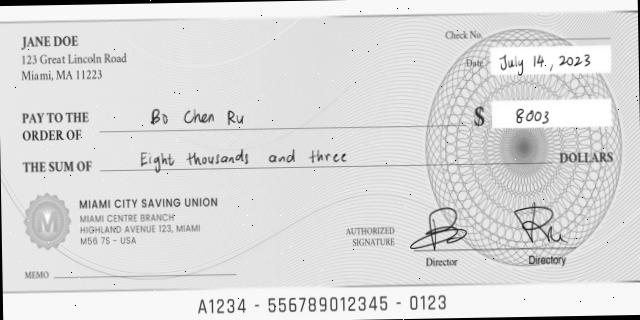 JANE DOE
123 Great Lincoln Road
Miami, MA 11223
Check No.
Date July 14, 2023
PAY TO THE
ORDER OF Bo Chen Ru $ 8003
THE SUM OF Eight thousands and three DOLLARS
M
MIAMI CITY SAVING UNION
MIAMI CENTRE BRANCH
HIGHLAND AVENUE 123, MIAMI
M56 7S - USA
AUTHORIZED
SIGNATURE
Director Directory
MEMO
A1234 - 556789012345 - 0123